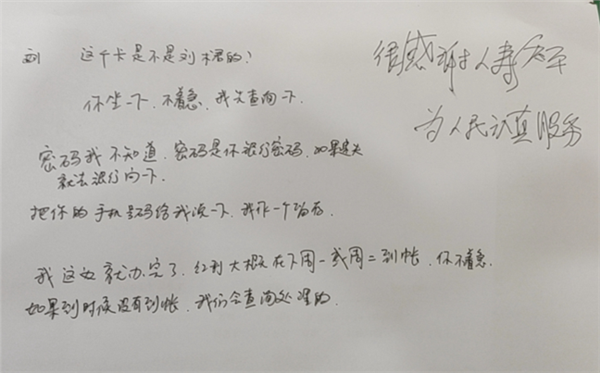 这个卡是不是刘 的?
你坐一下,不着急,我先查询一下.
密码我不知道,密码是你银行密码,如果是
就去银行问一下.
把你的手机号码给我读一下,我作一个留存.
我这边就办完了,红利大概在下周一或周二到帐,你不着急.
如果到时候没有到帐,我们会查询处理的.
很感谢人寿
为人民认真服务